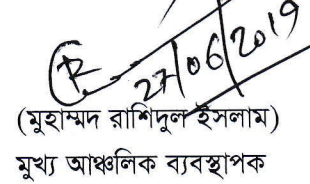 27/06/2019
(মুহাম্মদ রাশিদুল ইসলাম)
মুখ্য আঞ্চলিক ব্যবস্থাপক